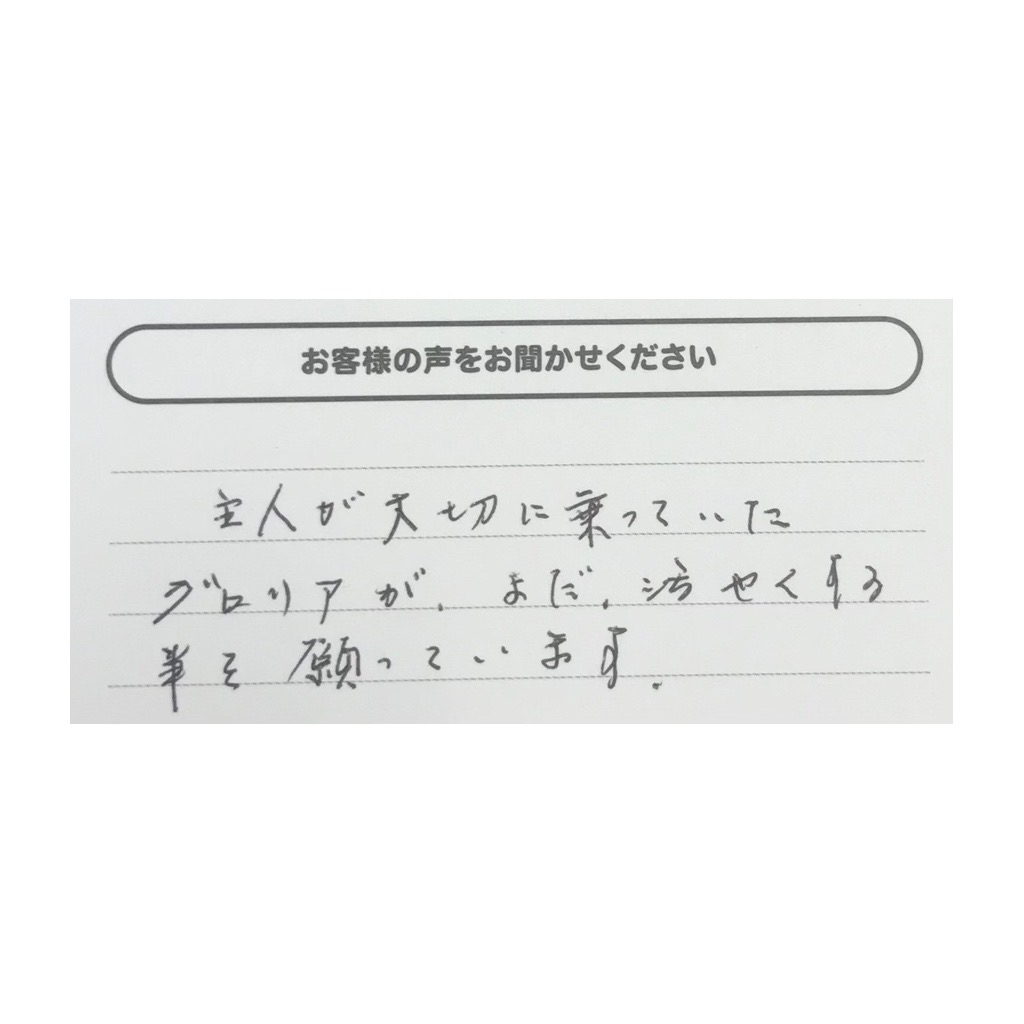 お客様の声をお聞かせください
主人が大切に乗っていた
グロリアが、まだ、活やくする
事を願っています.